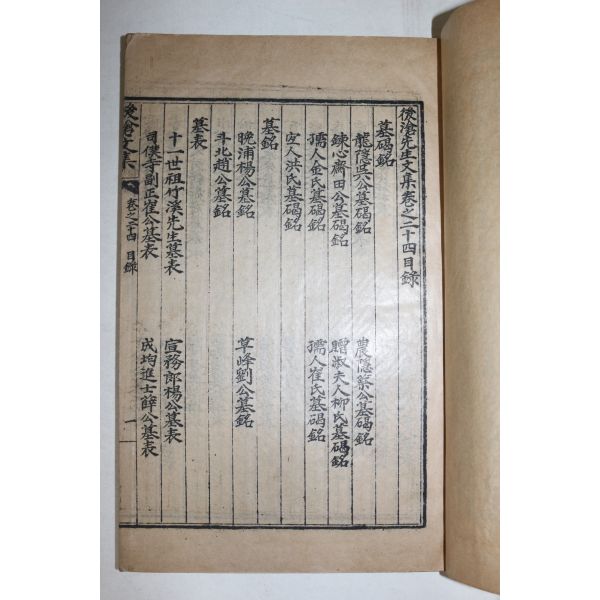 後滄先生文集卷之二十四目錄
墓碣銘
龍隱吳公墓碣銘 農隱蔡公墓碣銘
鍊心齋田公墓碣銘 贈淑夫人柳氏墓碣銘
孺人金氏墓碣銘 孺人崔氏墓碣銘
宜人洪氏墓碣銘
墓銘
晩浦楊公墓銘 草峰劉公墓銘
斗北趙公墓銘
墓表
十一世祖竹溪先生墓表 宣務郎楊公墓表
司僕寺副正崔公墓表 成均進士薛公墓表
後滄文集 卷之二十四 目錄 一